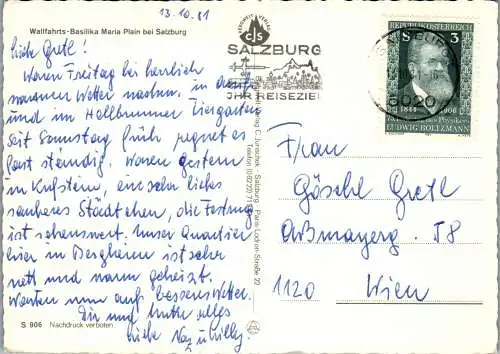 13.10.81
Wallfahrts-Basilika Maria Plain bei Salzburg
cjs
SALZBURG
IHR REISEZIEL
5020
REPUBLIK ÖSTERREICH
S 3
1844 1906
LUDWIG BOLTZMANN
Liebe Gretl!
Waren Freitag bei herrlich
warmem Wetter nachm. in
und im Hellbrunner Tiergarten
seit Samstag früh regnet es
fast ständig, waren gestern
in Kufstein, ein sehr liebes
sauberes Städtchen, die Festung
ist sehenswert. Unser Quartier
hier in Bergheim ist sehr
nett und warm geheizt.
Warten nun auf besseres Wetter.
Dir und Mutter alles
Liebe
Verlag C. Jurischek · Salzburg · Paris-Lodron-Straße 22
Telefon (06222) 71
Frau
Gösche Gretl
Aßmayerg. 58
1120 Wien
S 906 Nachdruck verboten